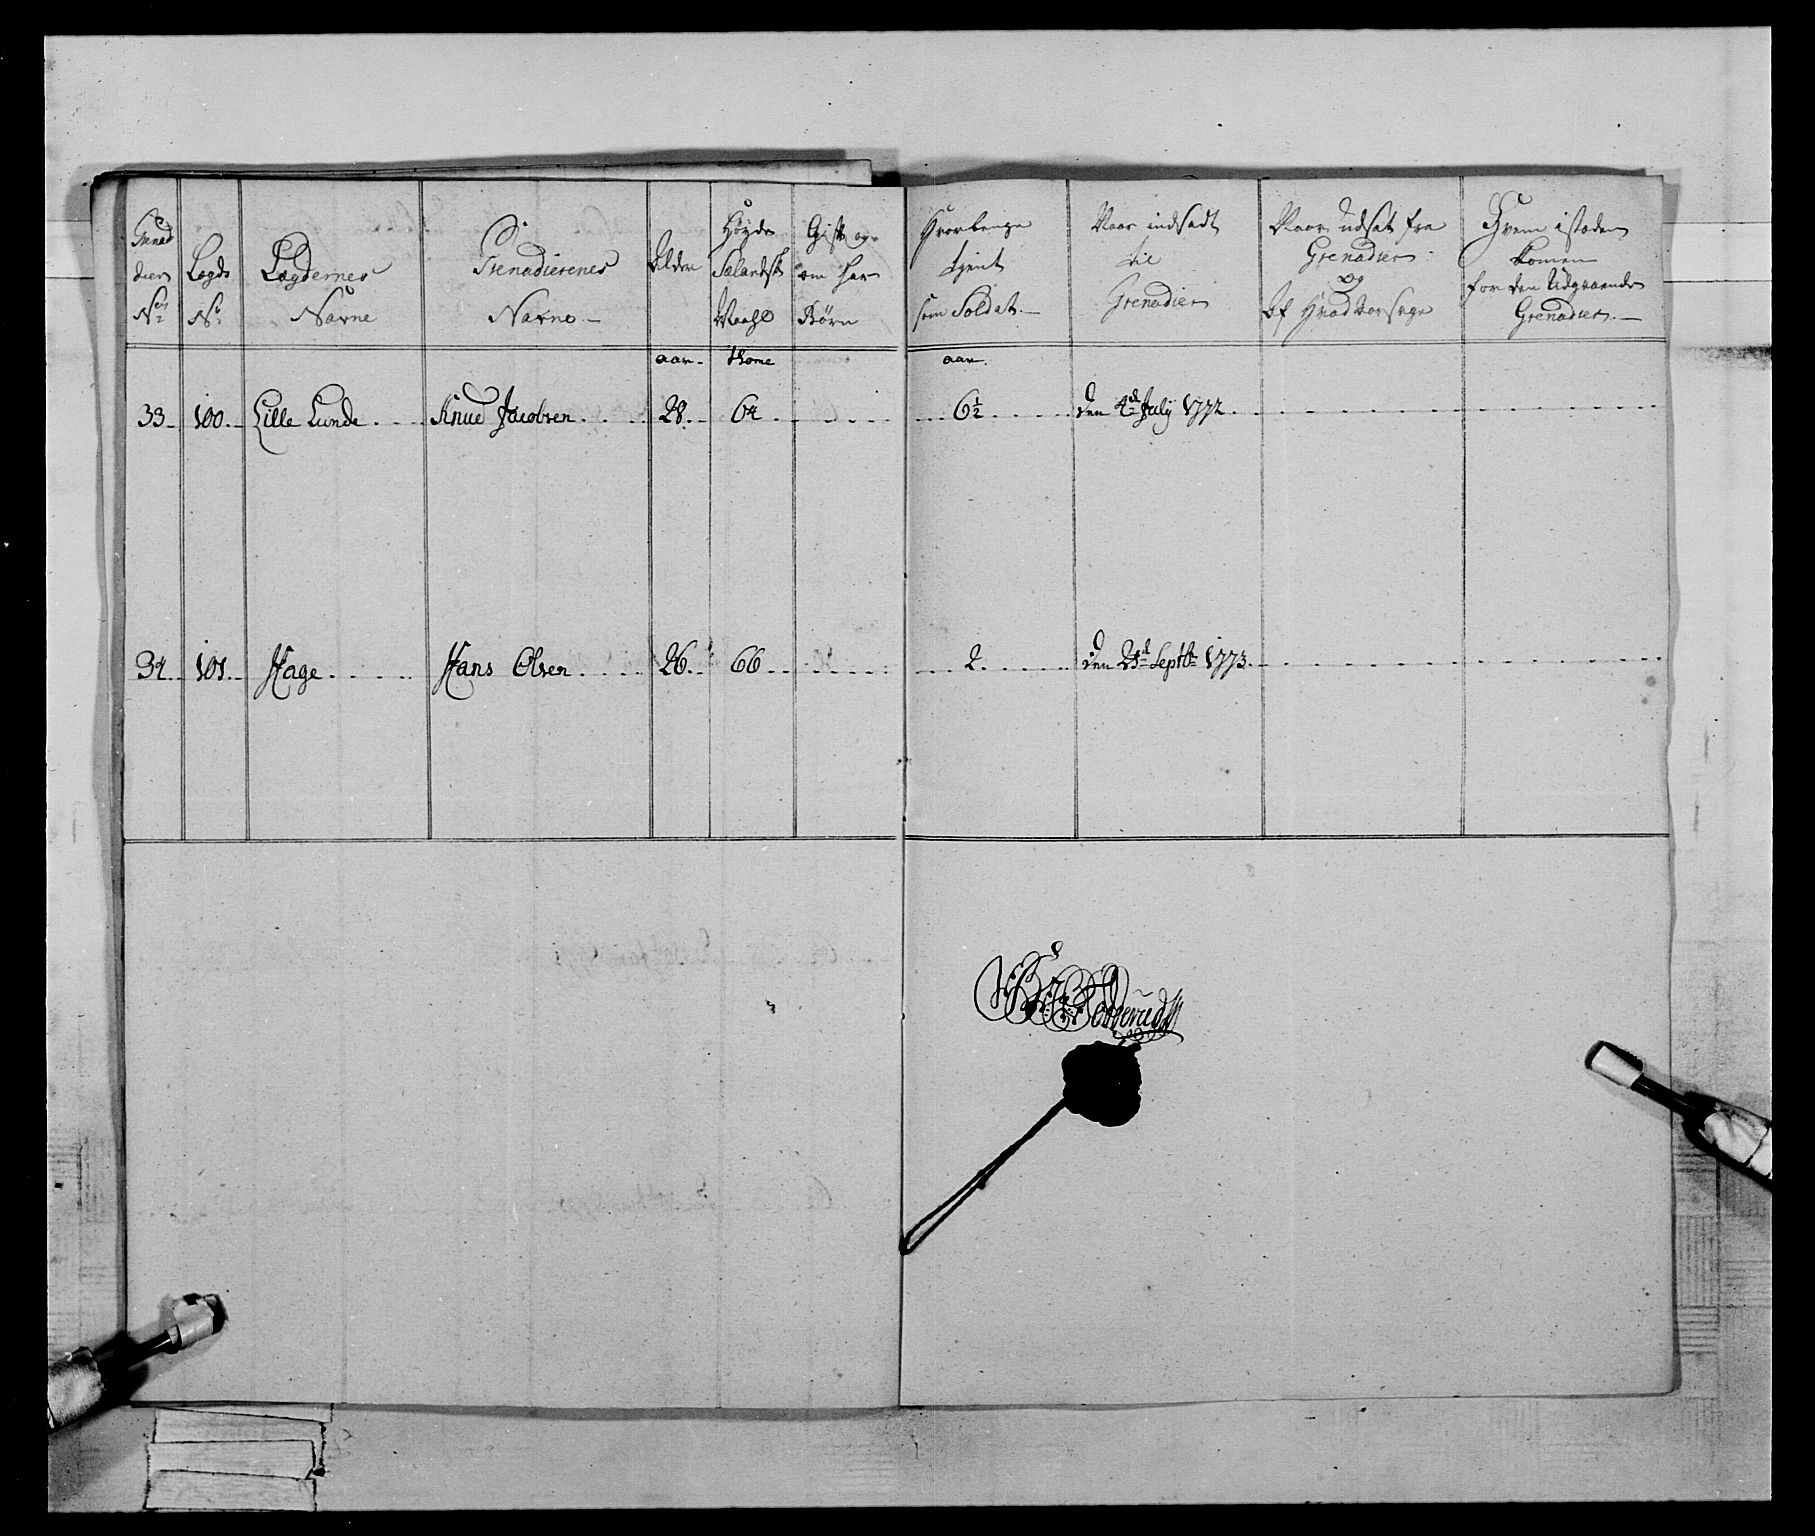 Grenad
dier
No
Legds
No
Lægdernes
Navne
Grenadierenes
Navne
Alder
Høyde
Sælandsk
Maahl
Gift og
om har
Børn
Hvorlænge
tient
som Soldat
Naar indsadt
til
Grenadier
Naar udsat fra
Grenadier
og
Af Hvad Aarsage
Hvem i steden
komen
for den Udgaaende
Grenadier
aar
tome
aar
33 100 Lille Lunde Knud Jacobsen 28 64 6½ den 4de July 1772
34 101 Hage Hans Olsen 26 66 2 den 21de Septbr 1773